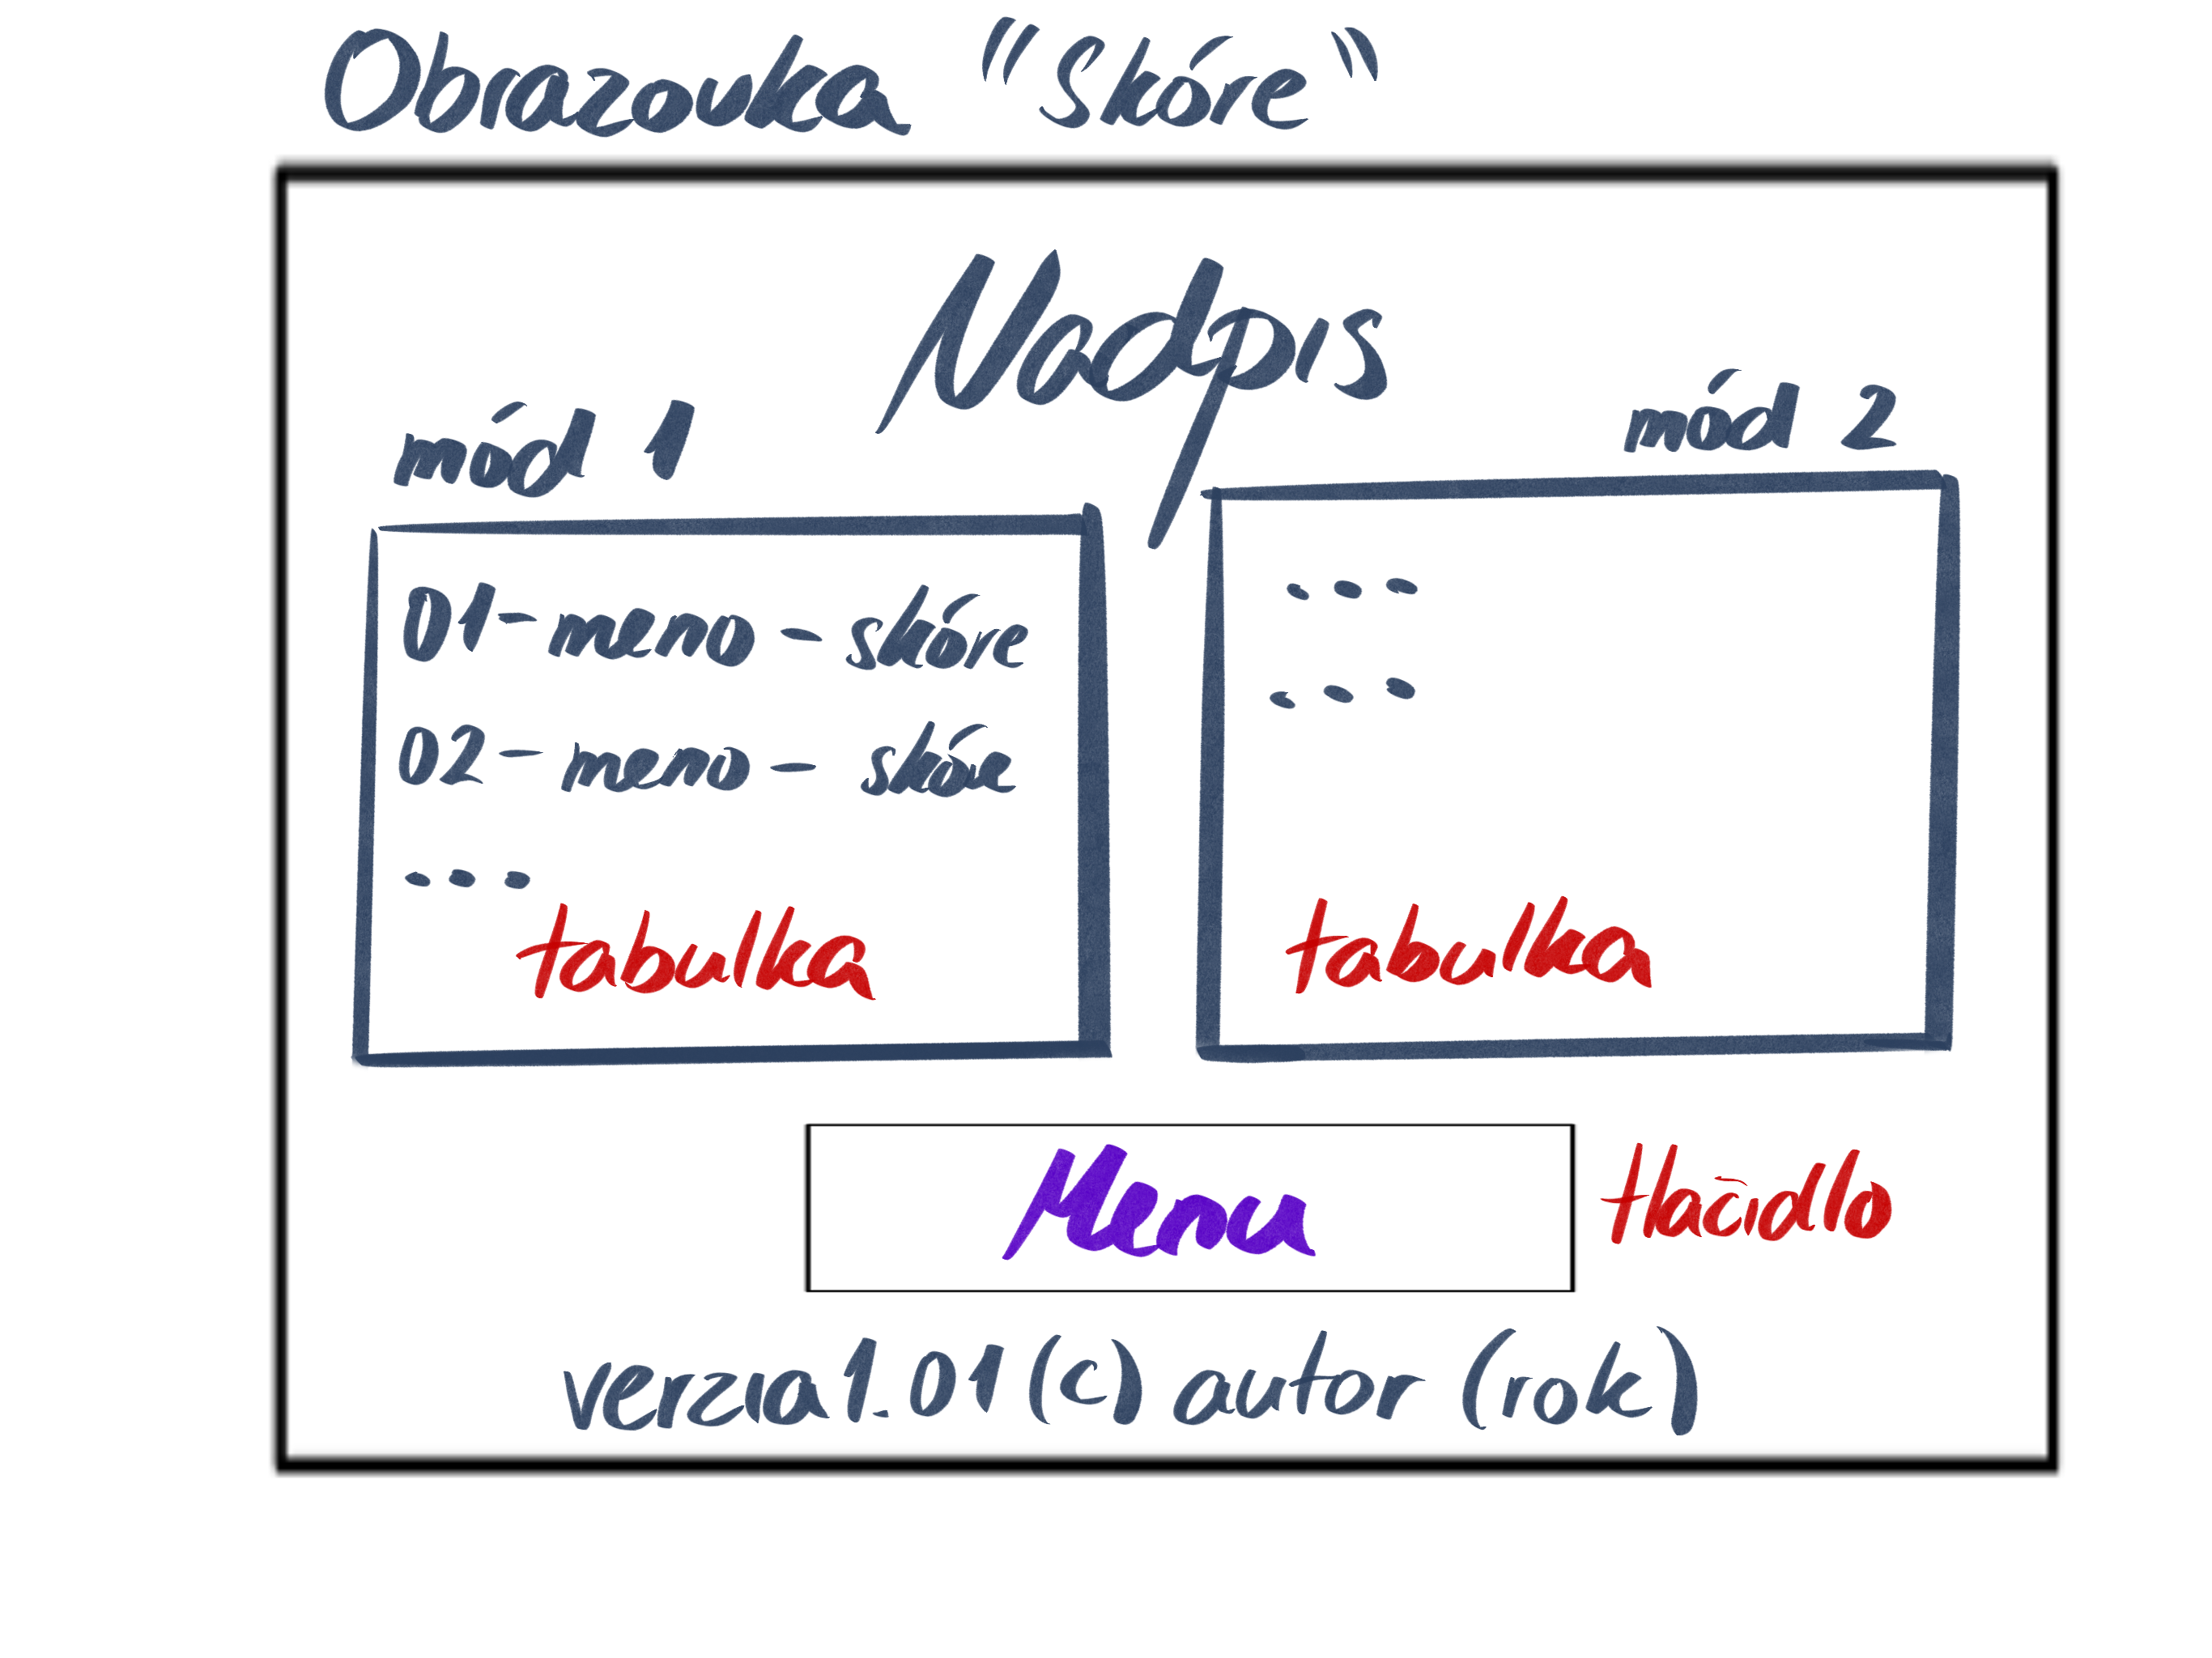 Obrazovka "Skóre"
Nadpis
mód 1
mód 2
01-meno-skóre
02-meno-skóre
...
tabulka
...
...
tabulka
Menu
tlačidlo
verzia 1.01 (c) autor (rok)